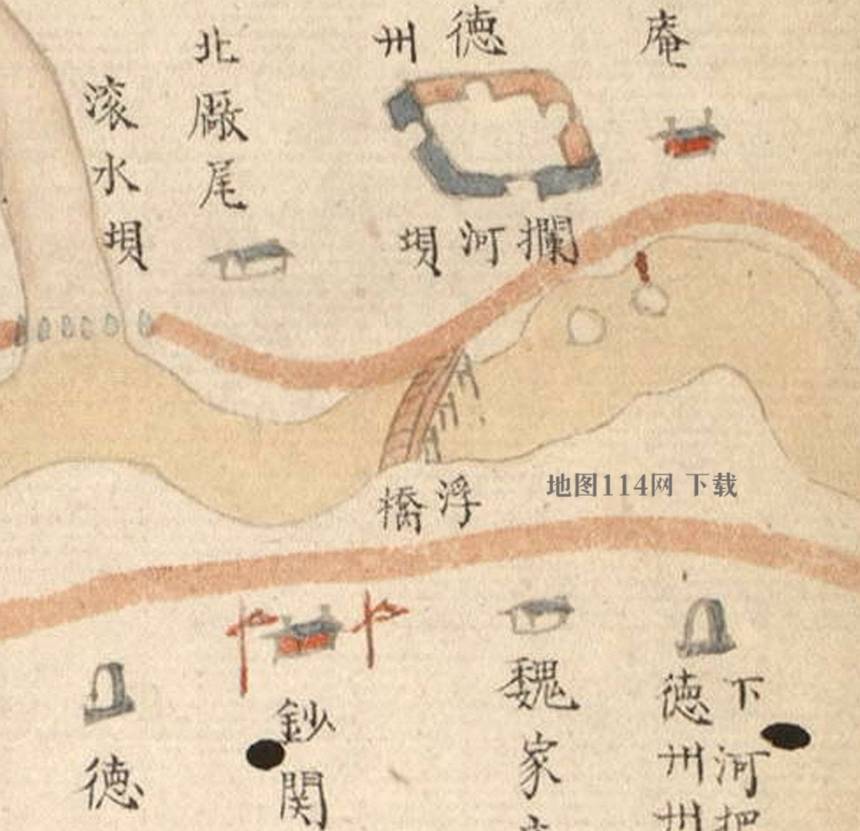 庵
德州
攔河垻
北厰尾
滚水垻
浮橋
地图114网 下载
下河把
德州州
魏家
鈔関
德